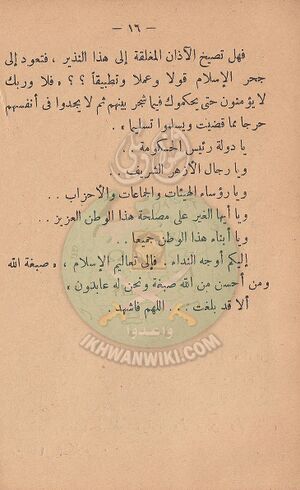 — ١٦ —
فهل تصيخ الآذان المغلقة إلى هذا النذير ، فتعود إلى
حجر الإسلام قولا وعملا وتطبيقاً ؟ ؟ « فلا وربك
لا يؤمنون حتى يحكموك فيما شجر بينهم ثم لا يجدوا فى أنفسهم
حرجا مما قضيت ويسلموا تسليما » .
يا دولة رئيس الحكومة . .
ويا رجال الأزهر الشريف . .
ويا رؤساء الهيئات والجماعات والأحزاب . .
ويا أيها الغير على مصلحة هذا الوطن العزيز . .
ويا أبناء هذا الوطن جميعا . .
إليكم أوجه النداء . فإلى تعاليم الإسلام ، « صبغة الله
ومن أحسن من الله صبغة ونحن له عابدون »
ألا قد بلغت . . اللهم فاشهد .
وأعدوا
IKHWANWIKI.COM